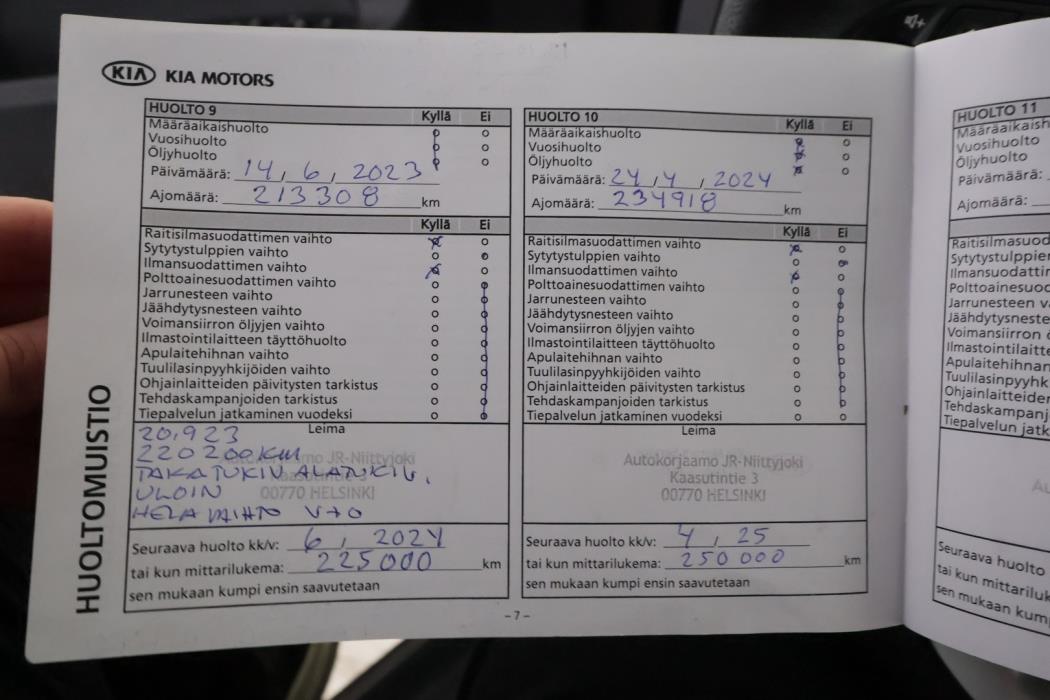 KIA KIA MOTORS
HUOLTOMUISTIO
HUOLTO 9 Kyllä Ei
Määräaikaishuolto
Vuosihuolto
Öljyhuolto
Päivämäärä: 14, 6, 2023
Ajomäärä: 213308 km
Kyllä Ei
Raitisilmasuodattimen vaihto
Sytytystulppien vaihto
Ilmansuodattimen vaihto
Polttoainesuodattimen vaihto
Jarrunesteen vaihto
Jäähdytysnesteen vaihto
Voimansiirron öljyjen vaihto
Ilmastointilaitteen täyttöhuolto
Apulaitehihnan vaihto
Tuulilasinpyyhkijöiden vaihto
Ohjainlaitteiden päivitysten tarkistus
Tehdaskampanjoiden tarkistus
Tiepalvelun jatkaminen vuodeksi
Leima
20.923
220200KM
TAKATUKIN
ULOIN
VAIHTO V+O
JR-Niittyjoki
00770 HELSINKI
Seuraava huolto kk/v: 6, 2024
tai kun mittarilukema: 225000 km
sen mukaan kumpi ensin saavutetaan
HUOLTO 10 Kyllä Ei
Määräaikaishuolto
Vuosihuolto
Öljyhuolto
Päivämäärä: 24,4, 2024
Ajomäärä: 234918 km
Kyllä Ei
Raitisilmasuodattimen vaihto
Sytytystulppien vaihto
Ilmansuodattimen vaihto
Polttoainesuodattimen vaihto
Jarrunesteen vaihto
Jäähdytysnesteen vaihto
Voimansiirron öljyjen vaihto
Ilmastointilaitteen täyttöhuolto
Apulaitehihnan vaihto
Tuulilasinpyyhkijöiden vaihto
Ohjainlaitteiden päivitysten tarkistus
Tehdaskampanjoiden tarkistus
Tiepalvelun jatkaminen vuodeksi
Leima
Autokorjaamo JR-Niittyjoki
Kaasutintie 3
00770 HELSINKI
Seuraava huolto kk/v: 4, 25
tai kun mittarilukema: 250000 km
sen mukaan kumpi ensin saavutetaan
-7-
HUOLTO 11
Määräaikaish
Vuosihuolto
Öljyhuolto
Päivämäärä:
Ajomäärä:
Raitisilmasuod
Sytytystulppie
Ilmansuodatti
Polttoainesuod
Jarrunesteen v
Jäähdytysneste
Voimansiirron ö
Ilmastointilaitte
Apulaitehihnan
Tuulilasinpyyhk
Ohjainlaitteide
Tehdaskampanj
Tiepalvelun jatk
Seuraava huolto
tai kun mittariluk
sen mukaan kum